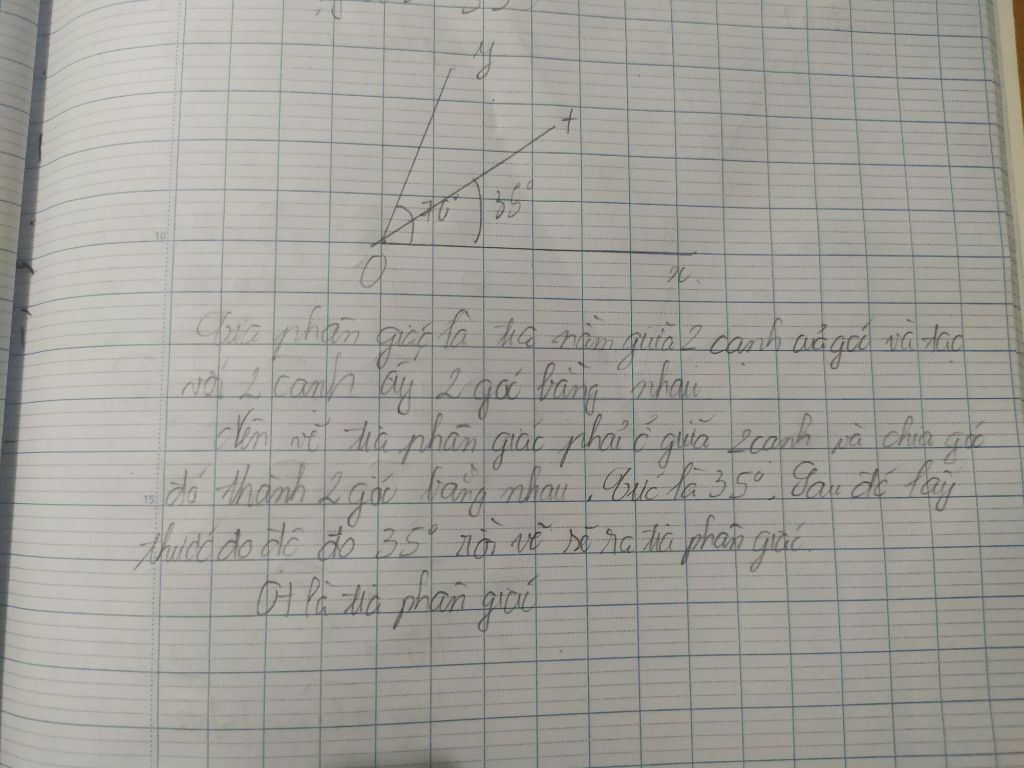 35
y
t
70°
35°
O
x
Tia phân giác là tia nằm giữa 2 cạnh của góc và tạo
với 2 cạnh ấy 2 góc bằng nhau
Nên vẽ tia phân giác phải ở giữa 2 cạnh và chia góc
đó thành 2 góc bằng nhau. Tức là 35°. Sau đó lấy
thước đo độ đo 35° rồi vẽ sẽ ra tia phân giác.
Ot là tia phân giác